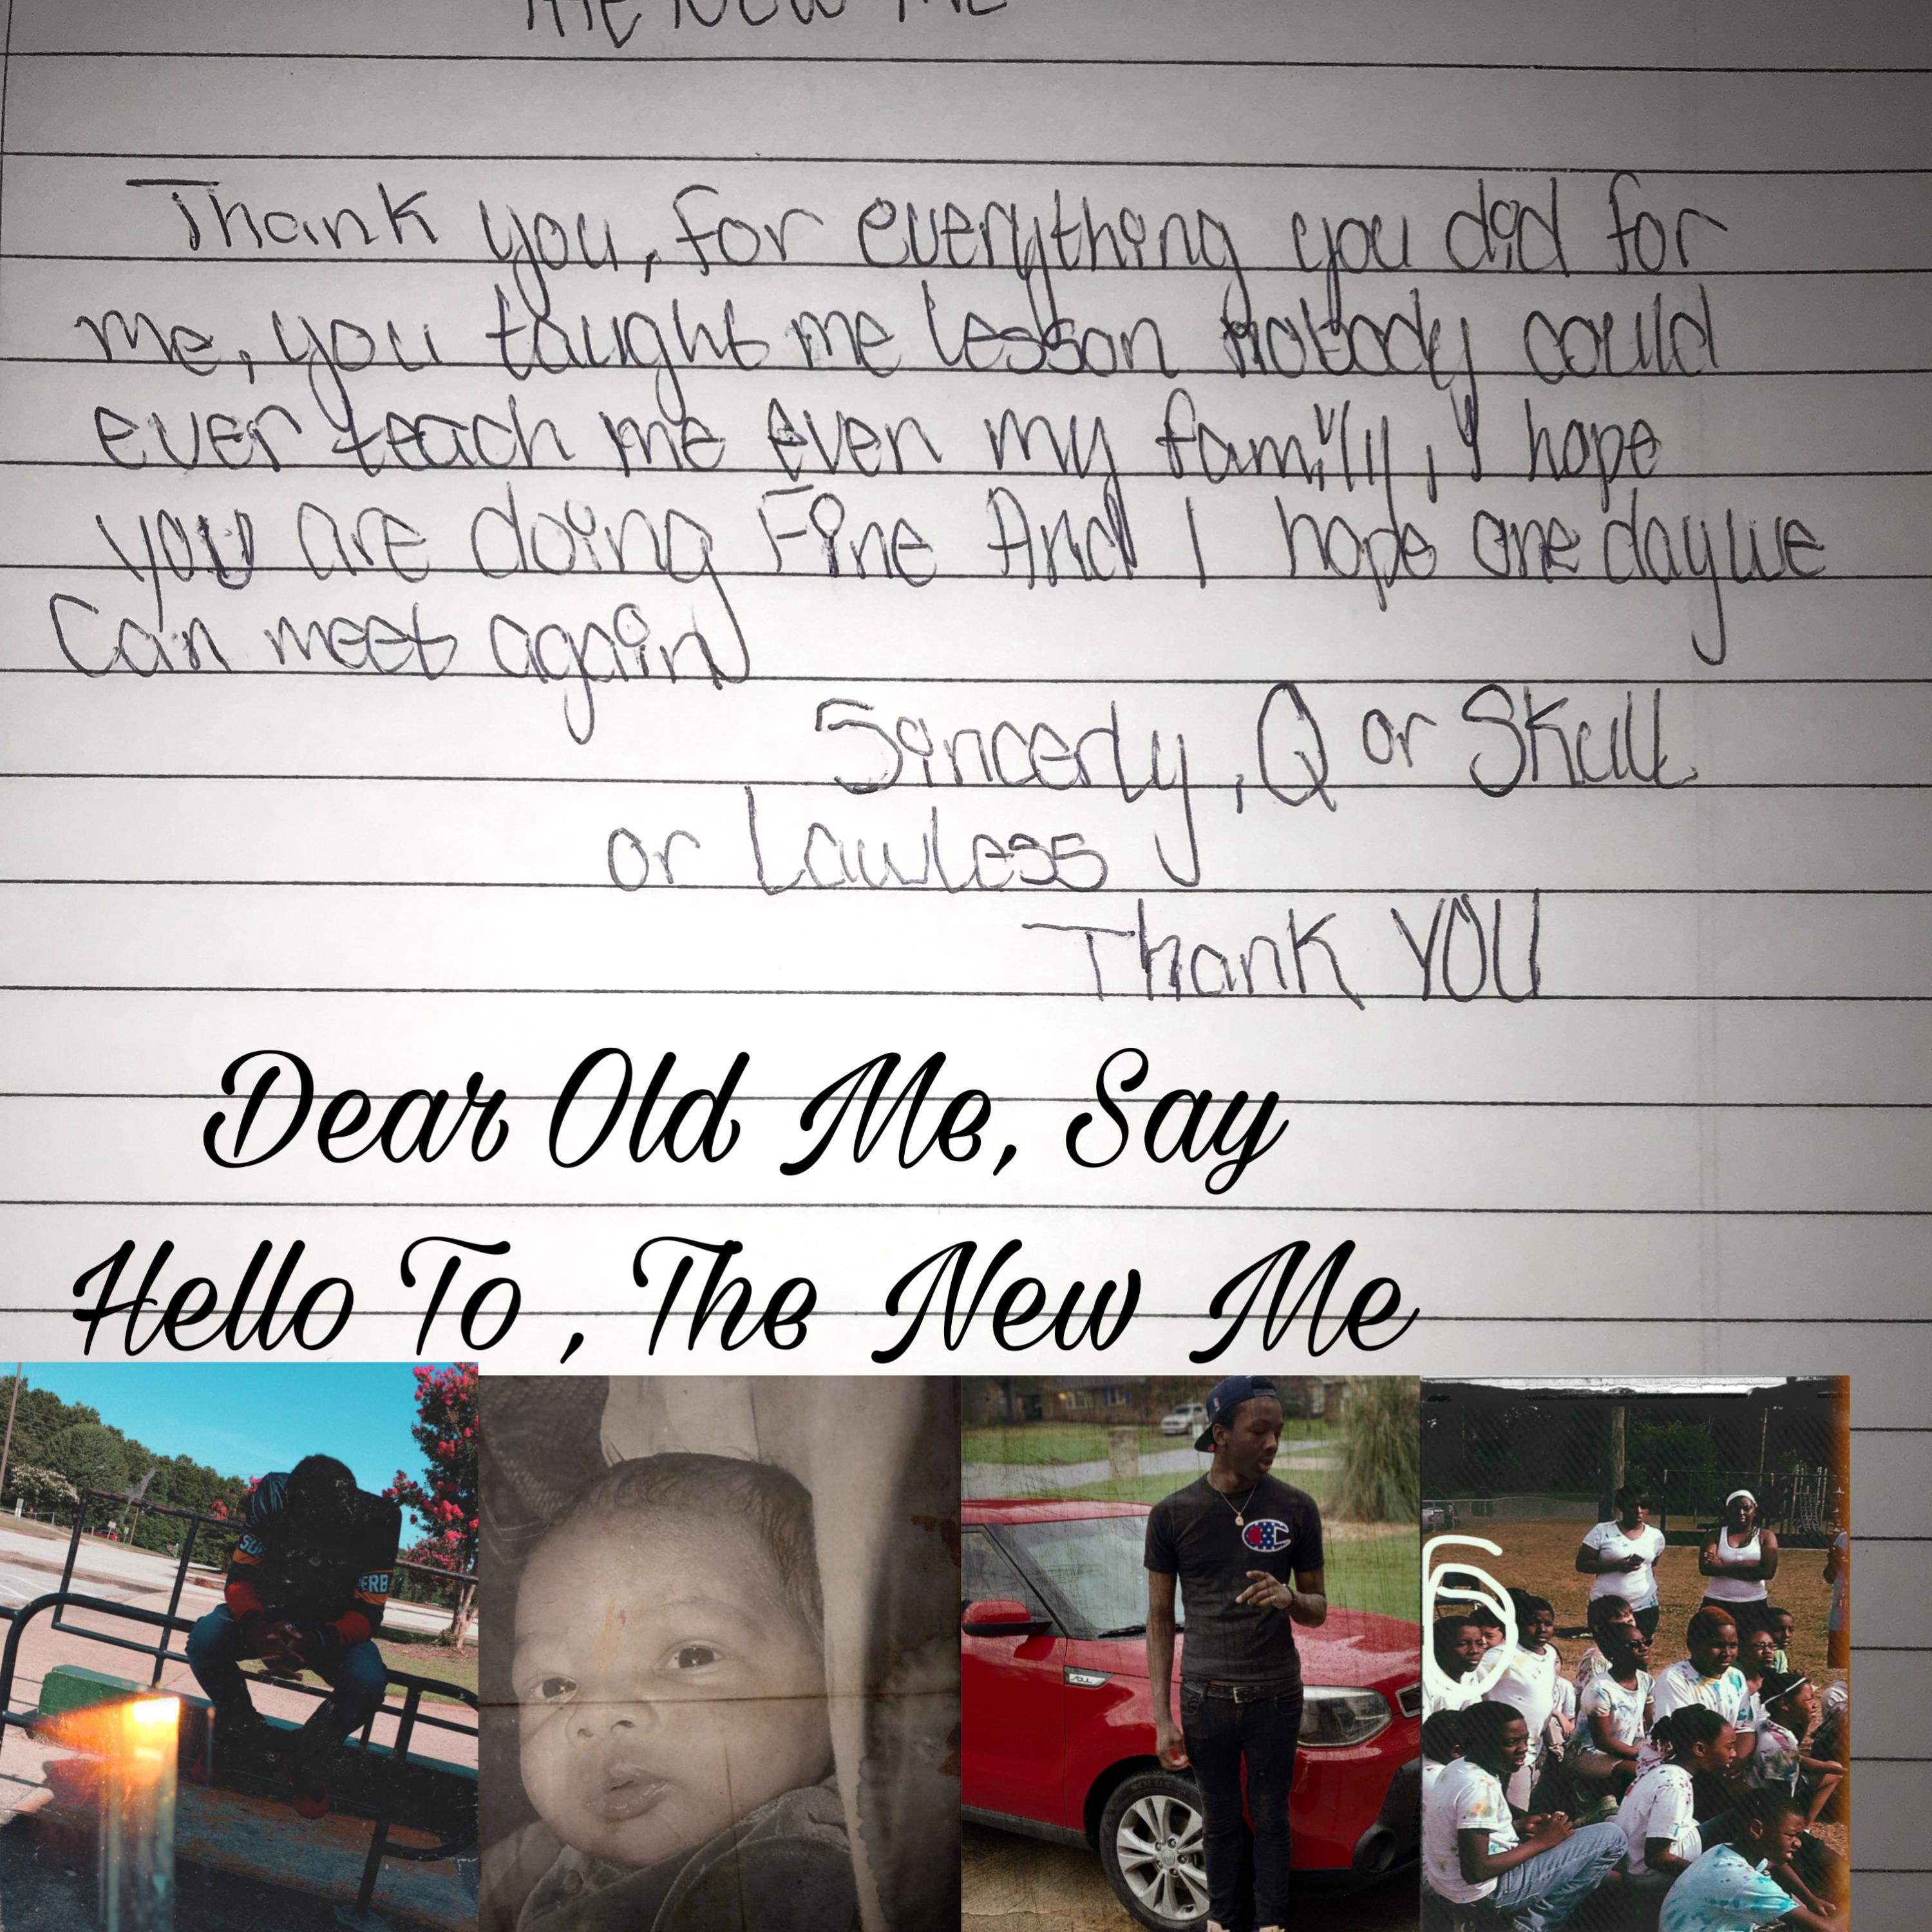 THE NEW ME
Thank you, for everything you did for
me, you taught me lesson nobody could
ever teach me even my family, I hope
you are doing Fine And I hope one day we
Can meet again
Sincerly, Q or Skull
or Lawless
Thank YOU
Dear Old Me, Say
Hello To , The New Me
SUP
ERB
C
SOUL
6